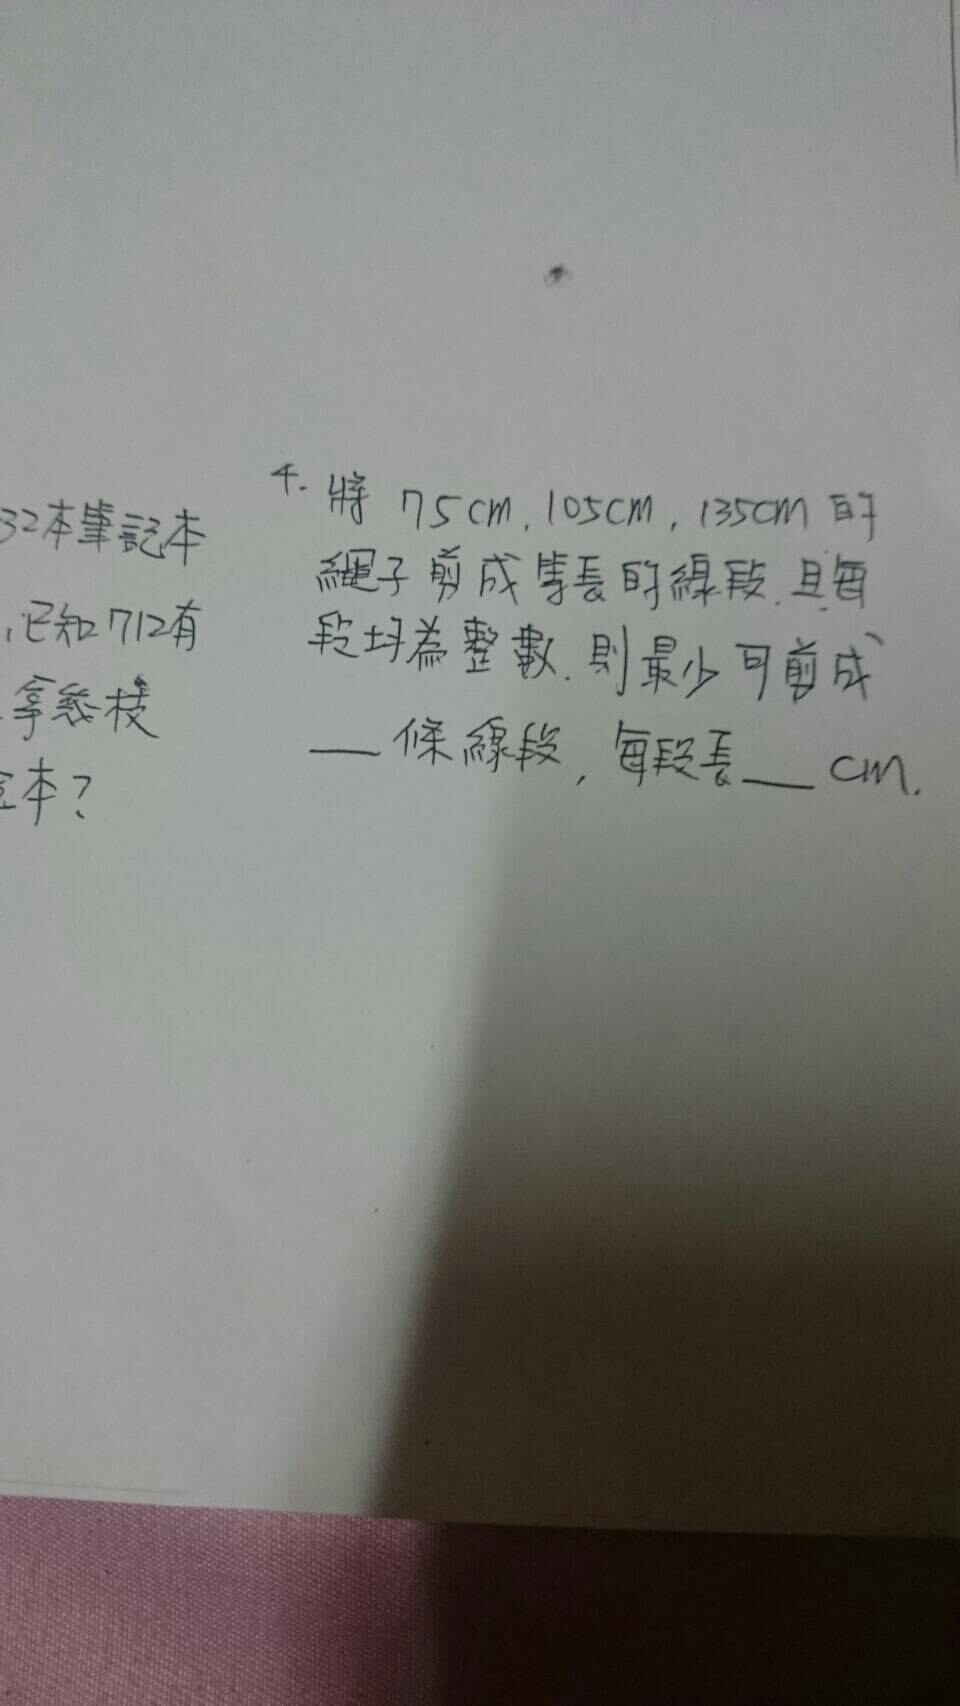 32本筆記本
,已知712有
拿幾枝
本?
4. 將 75cm, 105cm, 135cm 的
繩子剪成等長的線段,且每
段均為整數,則最少可剪成
__條線段,每段長__cm.